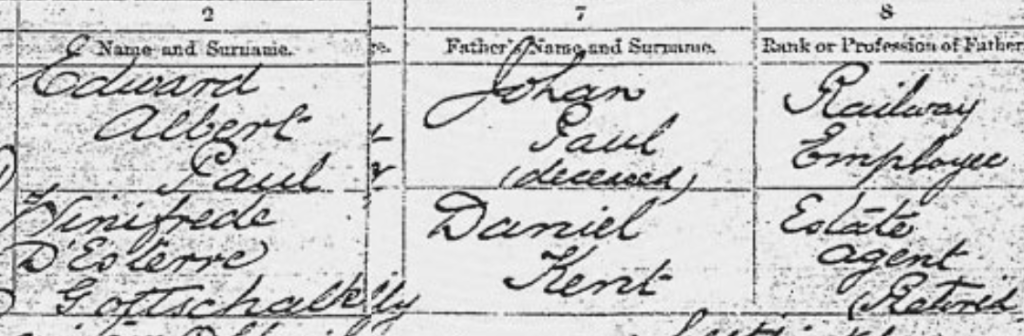 2 7 8
Name and Surname. Father's Name and Surname. Rank or Profession of Father
Edward Johan Railway
Albert Paul Employee
Paul (deceased)
Winifrede Daniel Estate
D'Esterre Kent agent
Gottschalk (Retired